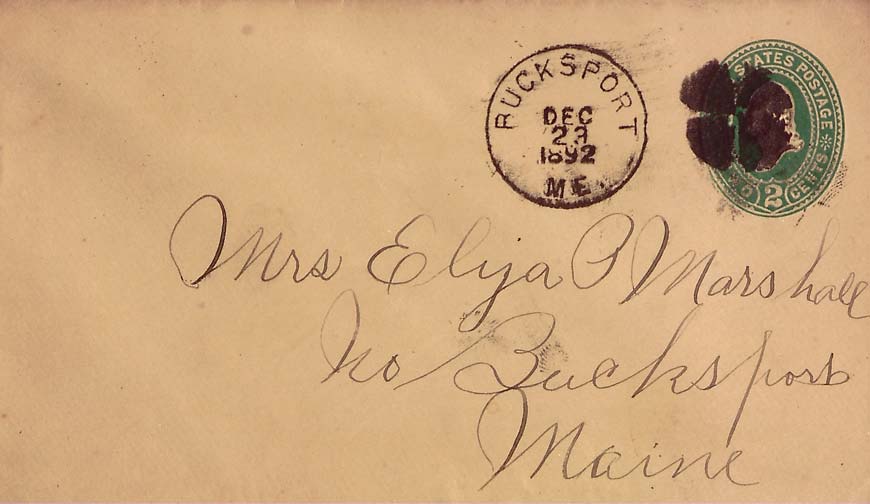 BUCKSPORT
DEC
23
1892
ME.
STATES POSTAGE
2 CENTS
Mrs Eliza P Marshall
No Bucksport
Maine